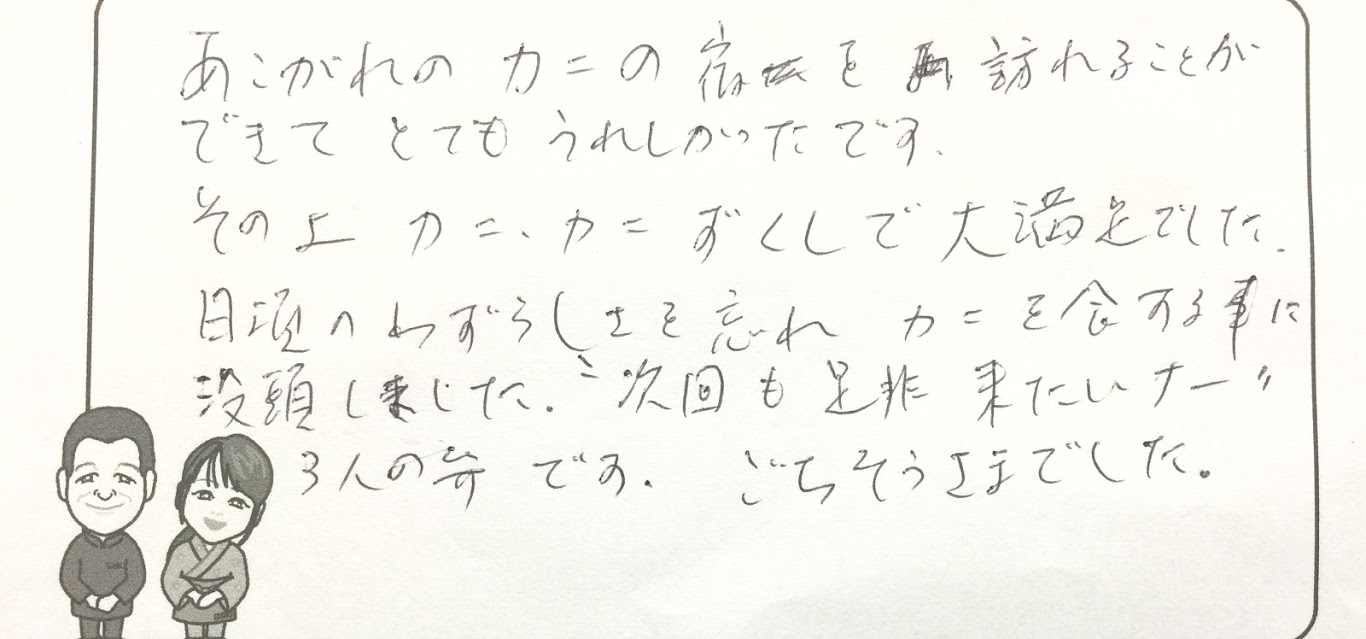 あこがれの カニの 宿を 訪れることが
できて とても うれしかったです.
その上 カニ、カニ ずくしで 大満足でした.
日頃の わずらしさを 忘れ カニを食する事に
没頭しました. 〝次回も 是非 来たいナー〟
3人の弁です. ごちそうさまでした。